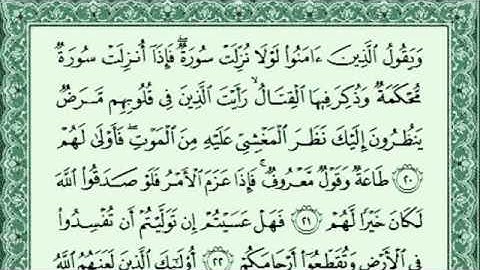 وَيَقُولُ ٱلَّذِينَ ءَامَنُوا۟ لَوْلَا نُزِّلَتْ سُورَةٌ ۖ فَإِذَآ أُنزِلَتْ سُورَةٌ
مُّحْكَمَةٌ وَذُكِرَ فِيهَا ٱلْقِتَالُ ۙ رَأَيْتَ ٱلَّذِينَ فِى قُلُوبِهِم مَّرَضٌ
يَنظُرُونَ إِلَيْكَ نَظَرَ ٱلْمَغْشِىِّ عَلَيْهِ مِنَ ٱلْمَوْتِ ۖ فَأَوْلَىٰ لَهُمْ
٢٠ طَاعَةٌ وَقَوْلٌ مَّعْرُوفٌ ۚ فَإِذَا عَزَمَ ٱلْأَمْرُ فَلَوْ صَدَقُوا۟ ٱللَّهَ
لَكَانَ خَيْرًا لَّهُمْ ٢١ فَهَلْ عَسَيْتُمْ إِن تَوَلَّيْتُمْ أَن تُفْسِدُوا۟
فِى ٱلْأَرْضِ وَتُقَطِّعُوٓا۟ أَرْحَامَكُمْ ٢٢ أُو۟لَـٰٓئِكَ ٱلَّذِينَ لَعَنَهُمُ ٱللَّهُ